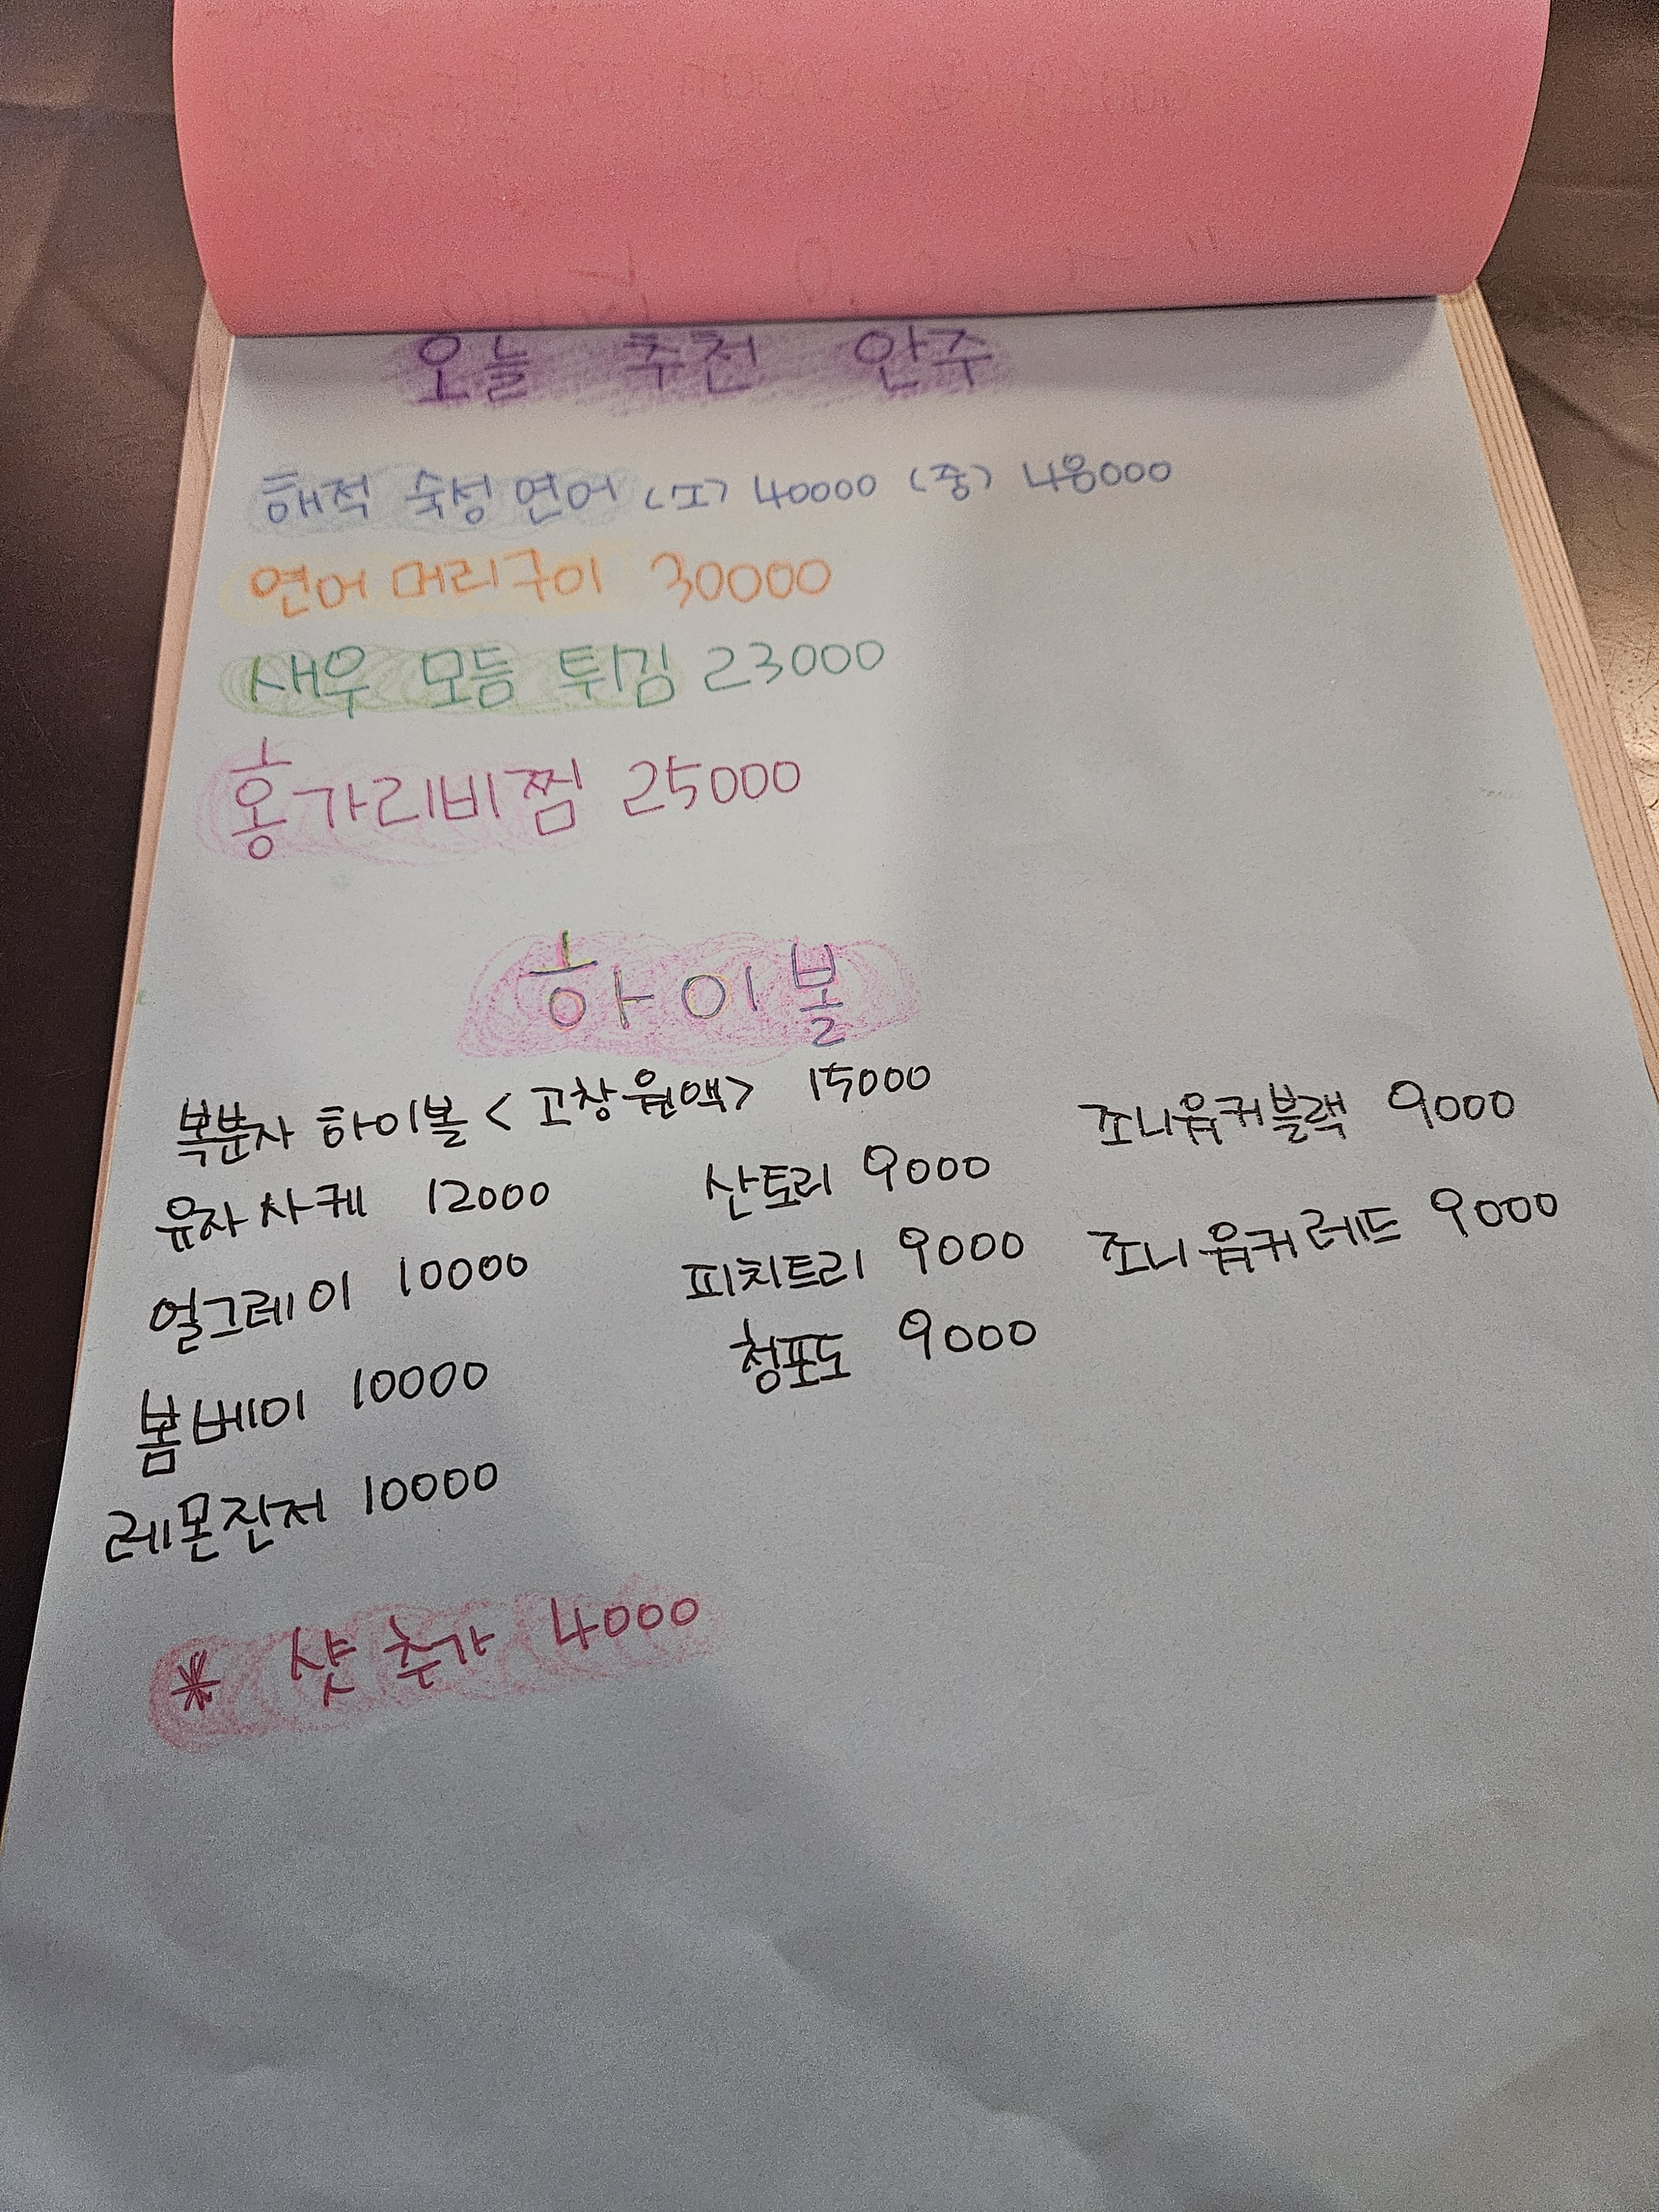 오늘 추천 안주
해적 숙성 연어 (소) 40000 (중) 48000
연어 머리구이 30000
새우 모듬 튀김 23000
홍가리비찜 25000
하이볼
복분자 하이볼 < 고창원액> 15000
유자사케 12000
얼그레이 10000
봄베이 10000
레몬진저 10000
산토리 9000
피치트리 9000
청포도 9000
조니워커블랙 9000
조니워커레드 9000
* 샷 추가 4000